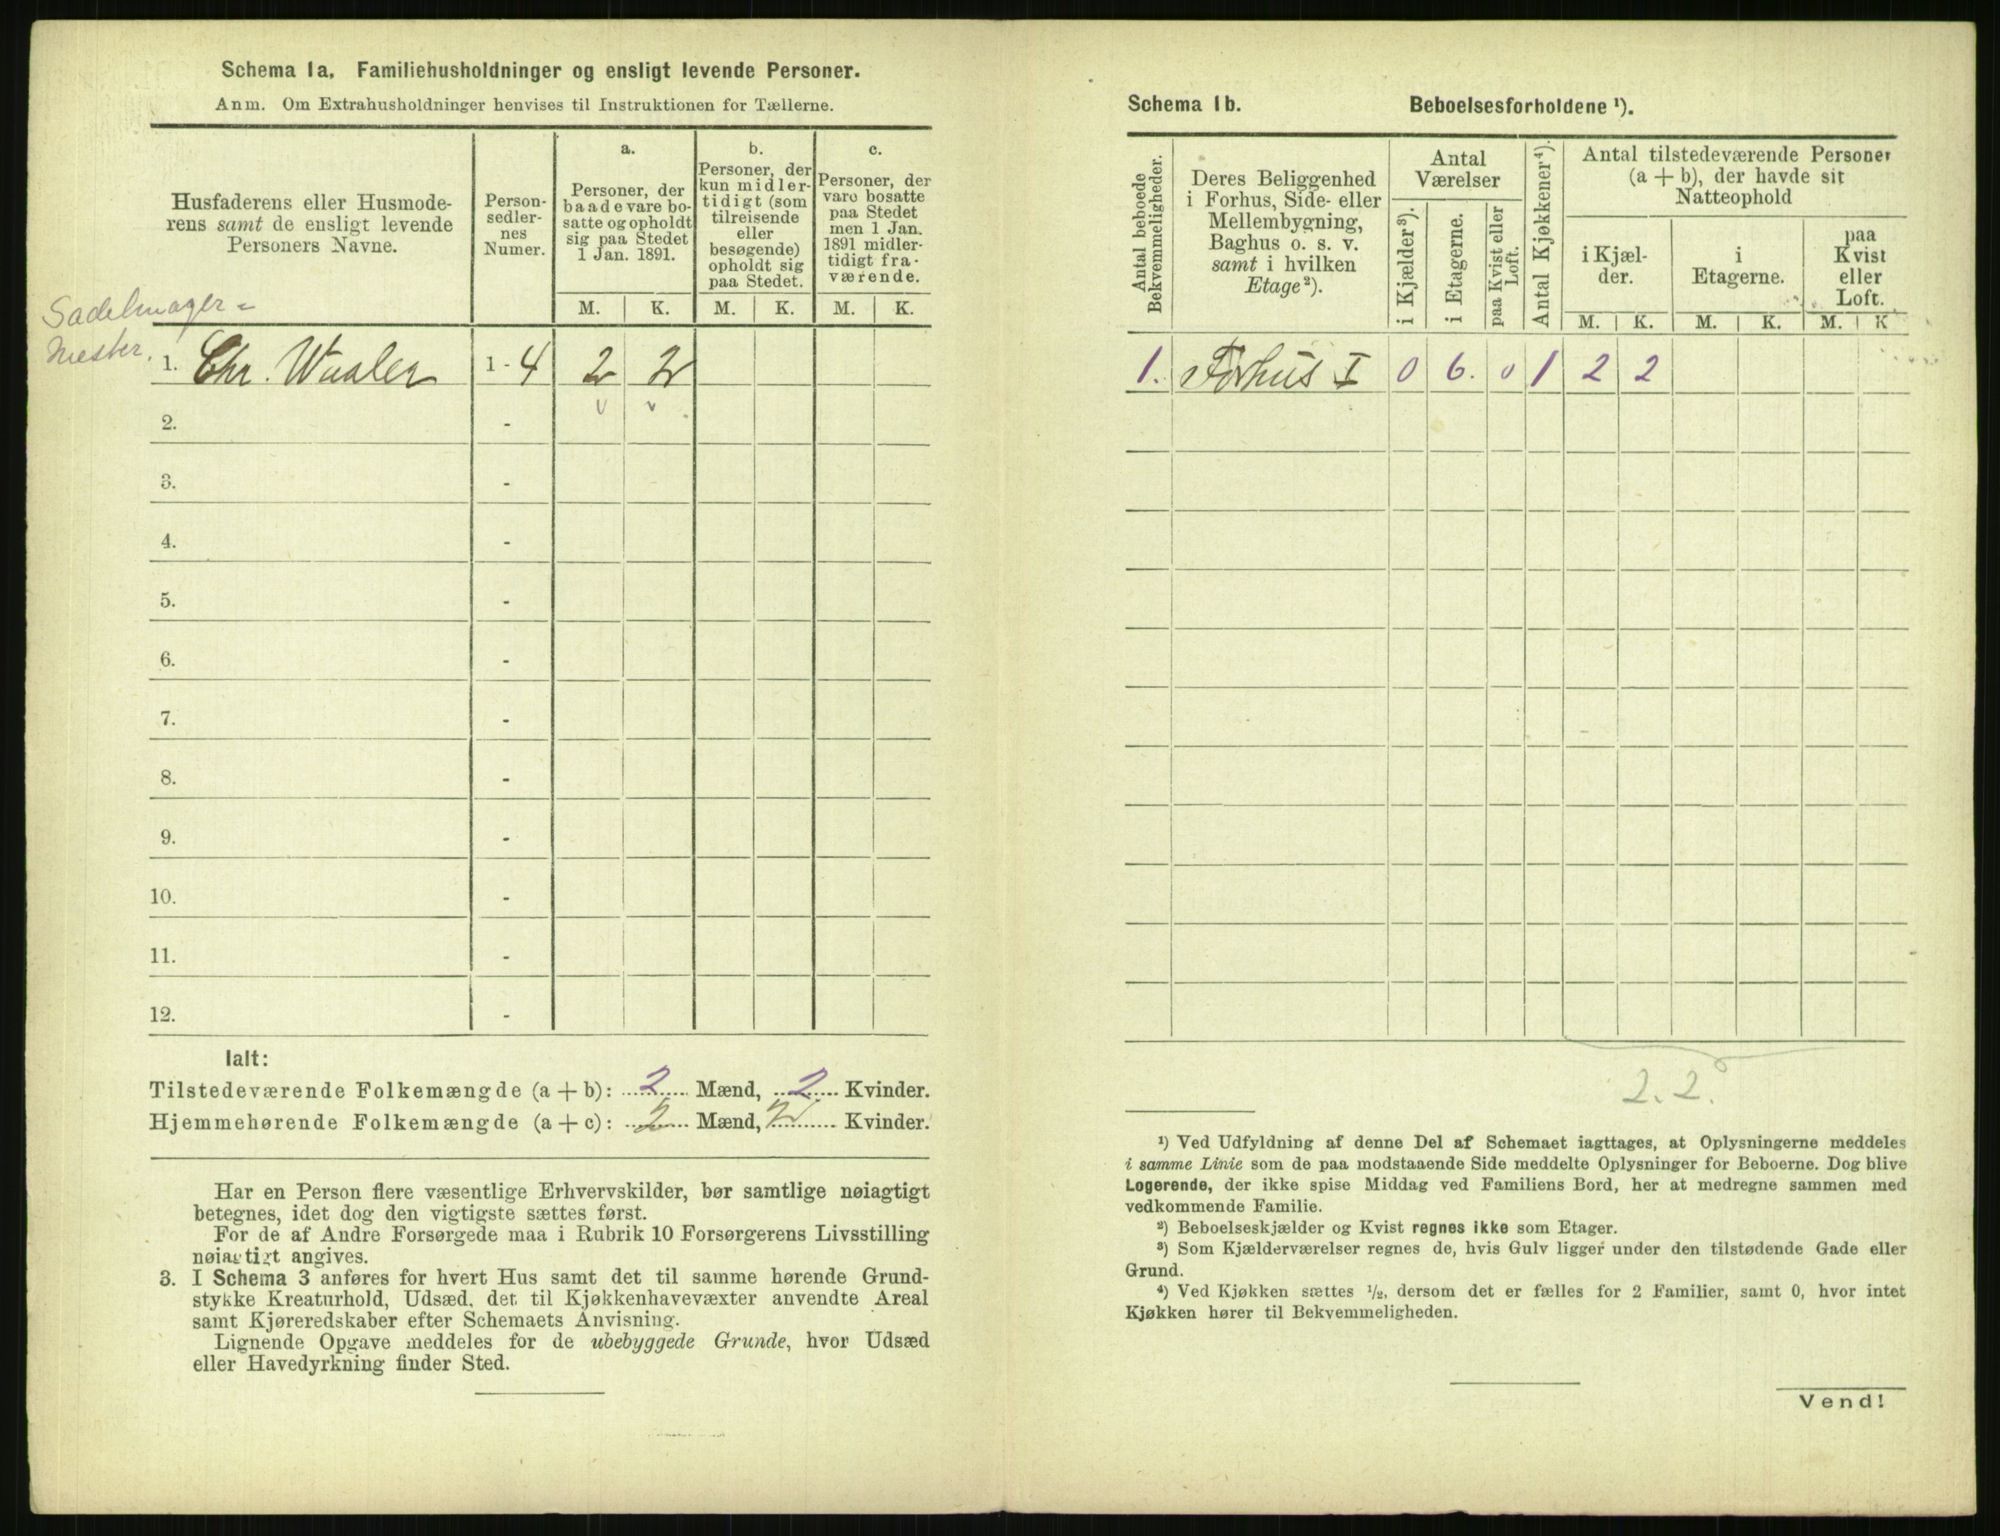 Schema 1a. Familiehusholdninger og ensligt levende Personer.
Anm. Om Extrahusholdninger henvises til Instruktionen for Tællerne.
Husfaderens eller Husmode-
rens samt de ensligt levende
Personers Navne.
Person-
sedler-
nes
Numer.
a.
Personer, der
baade vare bo-
satte og opholdt
sig paa Stedet
1 Jan. 1891.
b.
Personer, der
kun midler-
tidigt (som
tilreisende
eller
besøgende)
opholdt sig
paa Stedet.
c.
Personer, der
vare bosatte
paa Stedet
men 1 Jan.
1891 midler-
tidigt fra-
værende.
M. K. M. K. M. K.
Sadelmager =
mester.
1. Chr. Waaler 1 - 4 2 2
2. -
3. -
4. -
5. -
6. -
7. -
8. -
9. -
10. -
11. -
12. -
Ialt:
Tilstedeværende Folkemængde (a + b): 2 Mænd, 2 Kvinder.
Hjemmehørende Folkemængde (a + c): 2 Mænd, 2 Kvinder.
Har en Person flere væsentlige Erhvervskilder, bør samtlige nøiagtigt
betegnes, idet dog den vigtigste sættes først.
For de af Andre Forsørgede maa i Rubrik 10 Forsørgerens Livsstilling
nøiagtigt angives.
3. I Schema 3 anføres for hvert Hus samt det til samme hørende Grund-
stykke Kreaturhold, Udsæd, det til Kjøkkenhavevæxter anvendte Areal
samt Kjøreredskaber efter Schemaets Anvisning.
Lignende Opgave meddeles for de ubebyggede Grunde, hvor Udsæd
eller Havedyrkning finder Sted.
Schema 1b. Beboelsesforholdene ¹).
Antal beboede
Bekvemmeligheder.
Deres Beliggenhed
i Forhus, Side- eller
Mellembygning,
Baghus o. s. v.
samt i hvilken
Etage²).
Antal
Værelser
i Kjælder³).
i Etagerne.
paa Kvist eller
Loft.
Antal Kjøkkener⁴).
Antal tilstedeværende Personer
(a + b), der havde sit
Natteophold
i Kjæl-
der.
i
Etagerne.
paa
Kvist
eller
Loft.
M. K. M. K. M. K
1. Forhus I 0 6. 0 1 2 2
2. 2.
¹) Ved Udfyldning af denne Del af Schemaet iagttages, at Oplysningerne meddeles
i samme Linie som de paa modstaaende Side meddelte Oplysninger for Beboerne. Dog blive
Logerende, der ikke spise Middag ved Familiens Bord, her at medregne sammen med
vedkommende Familie.
²) Beboelseskjælder og Kvist regnes ikke som Etager.
³) Som Kjælderværelser regnes de, hvis Gulv ligger under den tilstødende Gade eller
Grund.
⁴) Ved Kjøkken sættes ½, dersom det er fælles for 2 Familier, samt 0, hvor intet
Kjøkken hører til Bekvemmeligheden.
Vend!